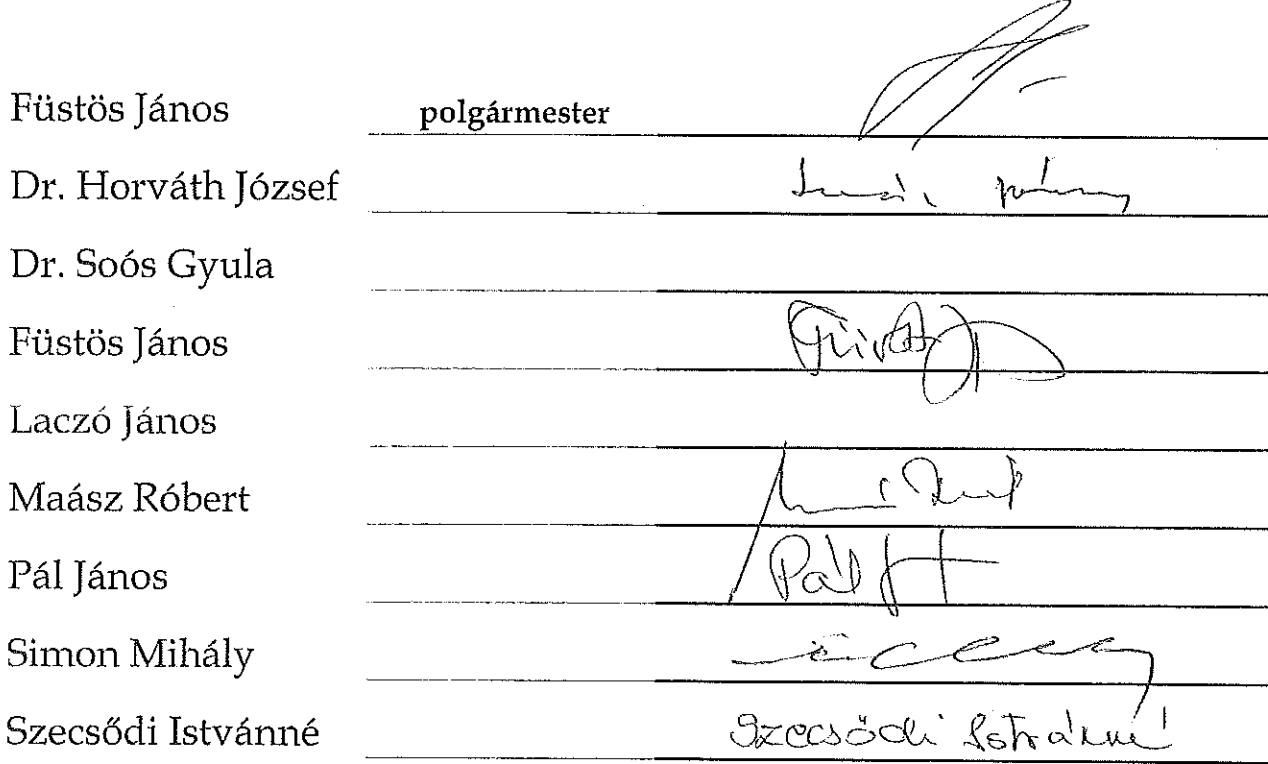 Füstös János polgármester
Dr. Horváth József
Dr. Soós Gyula
Füstös János
Laczó János
Maász Róbert
Pál János Pál
Simon Mihály
Szecsődi Istvánné Szecsődi Istvánné